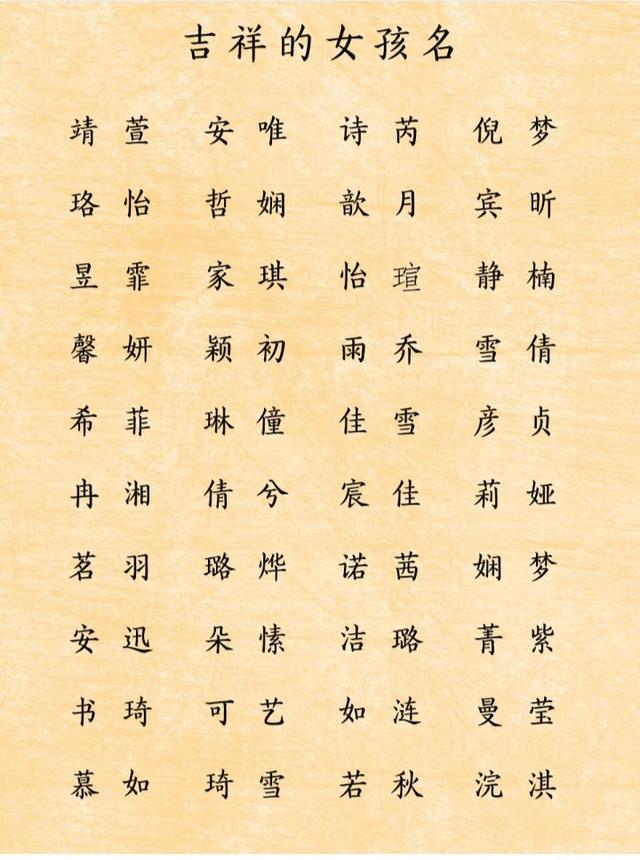 吉祥的女孩名
靖萱 安唯 诗芮 倪梦
珞怡 哲娴 歆月 宾昕
昱霏 家琪 怡瑄 静楠
馨妍 颖初 雨乔 雪倩
希菲 琳僮 佳雪 彦贞
冉湘 倩兮 宸佳 莉娅
茗羽 璐烨 诺茜 娴梦
安迅 朵愫 洁璐 菁紫
书琦 可艺 如涟 曼莹
慕如 琦雪 若秋 浣淇